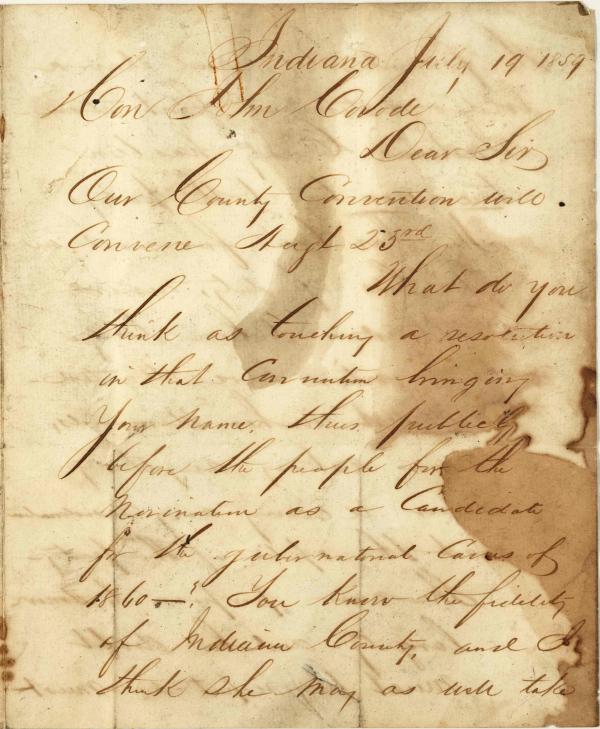 Indiana July 19 1859
Hon John Covode
Dear Sir
Our County Convention will
Convene Augt 23rd
What do you
think as touching a resolution
in that Convention bringing
Your name, thus publicly
before the people for the
Nomination as a Candidate
for the gubernatorial Canvas of
1860—? You know the fidelity
of Indiana County, and I
think she may as well take